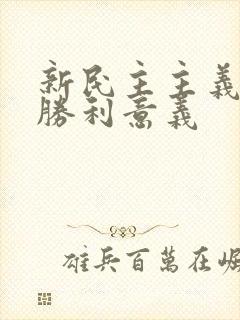 新民主主義
勝利意義
雄兵百萬在崛